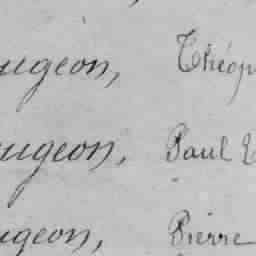 ugeon, Théop
ugeon, Paul
ugeon, Pierre